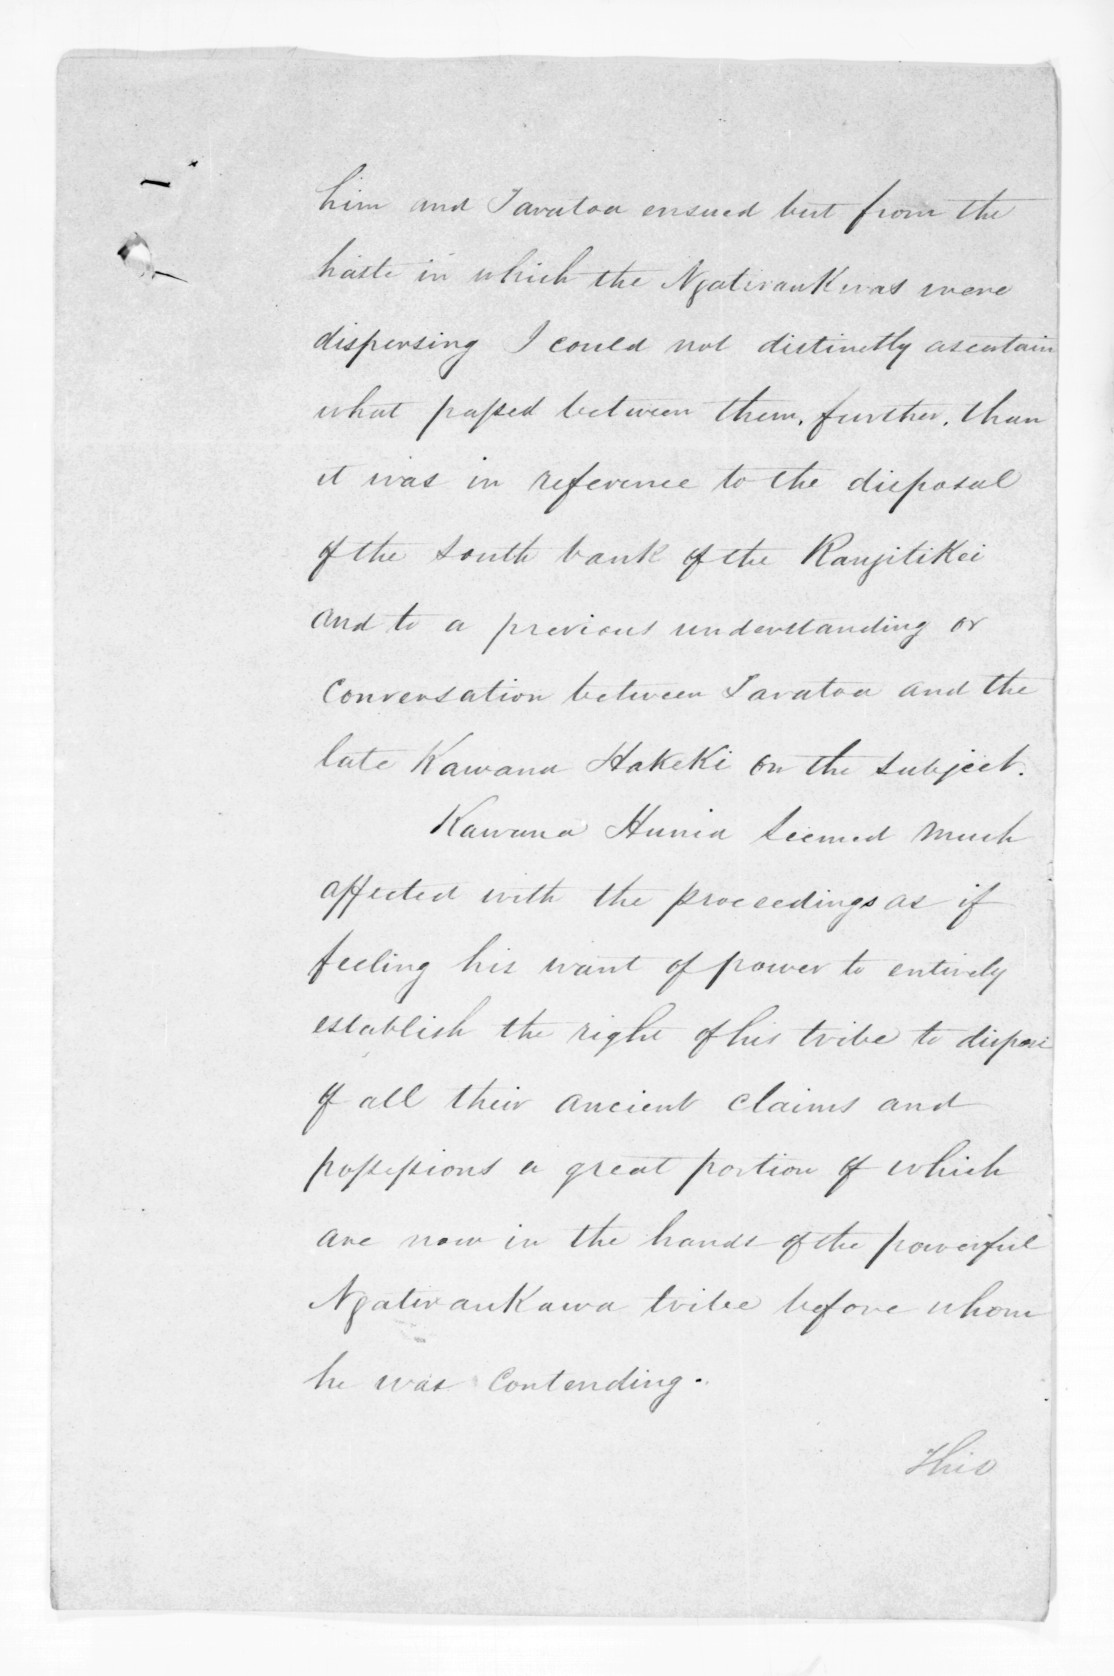 him and Taratoa ensued but from the
haste in which the Ngatiraukwas were
dispersing I could not distinctly ascertain
what passed between them, further, than
it was in reference to the disposal
of the South bank of the Rangitikei
and to a previous understanding or
Conversation between Taratoa and the
late Kawana Hakeki on the subject.
Kawana Hunia seemed much
affected with the proceedings as if
feeling his want of power to entirely
establish the right of his tribe to dispose
of all their ancient claims and
possessions a great portion of which
are now in the hands of the powerful
Ngatiraukawa tribe before whom
he was contending.
This